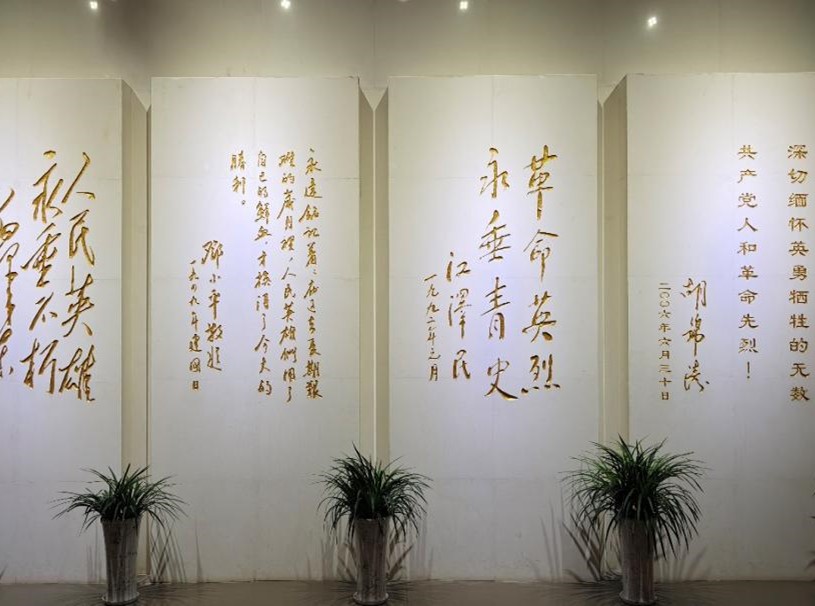 人民英雄
永垂不朽
永遠銘記着：在過去長期艱
難的歲月裡，人民英雄們用了
自己的鮮血，才換得了今天的
勝利。
鄧小平敬題
一九四九年建國日
革命英烈
永垂青史
江澤民
一九九二年元月
深切缅怀英勇牺牲的无数
共产党人和革命先烈！
胡锦涛
二〇〇六年六月三十日